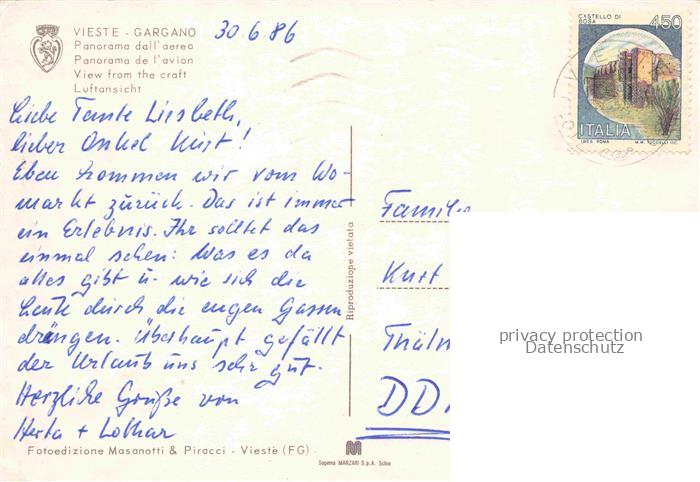 VIESTE - GARGANO
Panorama dall'aereo
Panorama de l'avion
View from the craft
Luftansicht
30.6.86
Liebe Tante Liesbeth,
lieber Onkel Kurt!
Eben kommen wir vom Wo-
markt zurück. Das ist immer
ein Erlebnis. Ihr solltet das
einmal sehen: Was es da
alles gibt u. wie sich die
Leute durch die engen Gassen
drängen. Überhaupt gefällt
der Urlaub uns sehr gut.
Herzliche Grüße von
Herta + Lothar
Fotoedizione Masanotti & Piracci - Vieste (FG)
Riproduzione vietata
Sagema MARZARI S.p.A. Schio
CASTELLO DI
BOSA
450
ITALIA
I.P.Z.S. ROMA
Familie
Kurt
Thälm
DD
privacy protection
Datenschutz